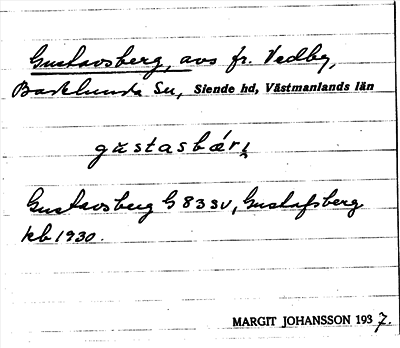 Gustavsberg, avs fr. Vedby,
Barklunda Sn, Siende hd, Västmanlands län
gustasbárj
Gustavsberg G 83 SV, Gustafsberg
kb 1930.
MARGIT JOHANSSON 1937.